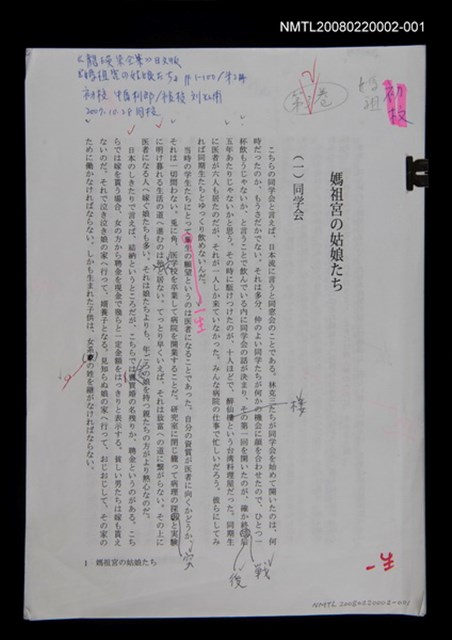 NMTL20080220002-001
初校
媽祖
媽祖宮の姑娘たち
(一) 同学会
こちらの同学会と言えば、日本流に言うと同窓会のことである。林克三たちが同学会を始めて開いたのは、何
時だったのか、もうさだかでない。それは多分、仲のよい同学たちが何かの機会に顔を合わせたので、ひとつ一
杯飲もうじゃないか、と言うことで飲んでいる内に同学会の話が決まり、その第一回を開いたのが、確か終戦后
五年あたりじゃないかと思う。その時に駆けつけたのが、十人ほどで、酔仙楼という台湾料理屋だった。同期生
に医者が六人も居たのだが、それが一人しか来ていなかった。みんな病院の仕事で忙しいだろう。彼らにしてみ
れば同期生たちとゆっくり飲めないんだ。
当時の学生たちにとって
の願望というのは医者になることであった。自分の資質が医者に向くかどうか、
それは一切問わない。兎に角、医学校を卒業して病院を開業することだ。研究室に閉じ籠って病理の探
と実験
に明け暮れる生活の道へ進むのは
居ない。てっとり早くいえば、それは致富への道に繋がらない。その上に
医者になる人へ嫁ぐ娘たちも多い。それは娘たちよりも、年ごろの娘を持つ親たちの方がより熱心なのだ。
日本のしきたりで言えば、結納というところだが、こちらでは
買婚の名残りか、聘金というのがある。こち
らでは嫁を貰う場合、女の方から聘金を現金で幾らと一定金額をはっきりと表示する。貧しい男たちは嫁も貰え
ないのだ。それで泣き泣き娘の家へ行って、婿養子となる。見知らぬ娘の家へ行って、おじおじして、その家の
ために働かなければならない。しかも生まれた子供は、女系
の姓を継がなければならない。
一生
楼
戦
後
究
一生
1 媽祖宮の姑娘たち
NMTL20080220002-001